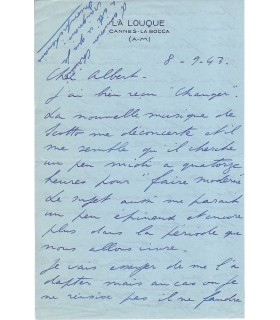 LA LOUQUE
CANNES - LA BOCCA
(A.-M.)
8-9-43.
Ché Albert -
J'ai bien reçu "Changer".
La nouvelle musique de
me déconcerte et il
me semble qu'il cherche
un peu midi à quatorze
heures pour "faire moderne"
Le sujet aussi me parait
un peu épineux et encore
plus dans la période que
nous allons vivre.
Je vais essayer de me l'a
dapter mais au cas ou je
ne réussise pas il ne faudra